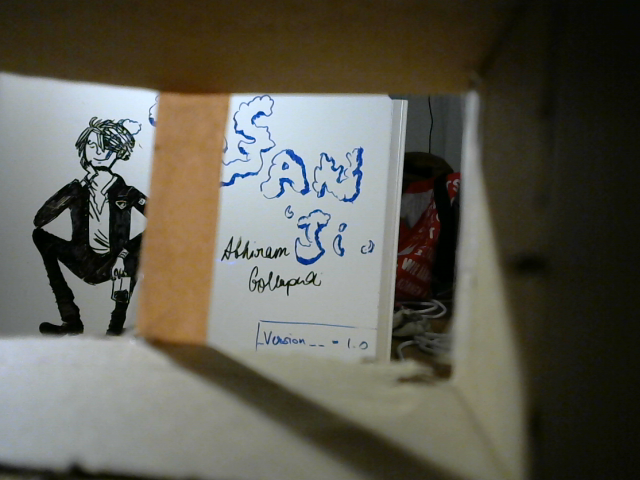 SAN
Ji
Abhiram
Gollapudi
__Version__ = 1.0